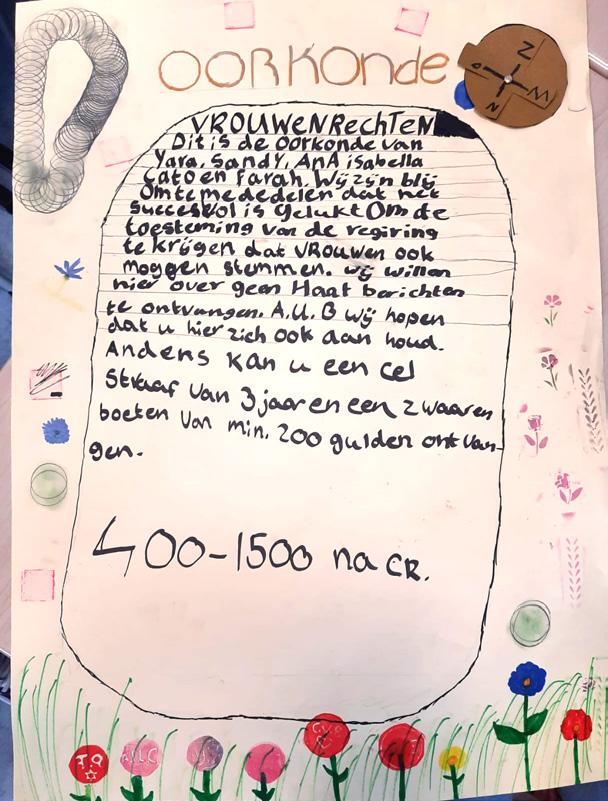 OORKONdE
Z
O
W
N
VROUWENRechTEN
Dit is de oorkonde van
Yara, Sandy, AnA isabella
Cato en Farah. Wij zijn blij
Om te mededelen dat het
succesvol is gelukt Om de
toesteming van de regiring
te krijgen dat VROUWEN ook
moggen stemmen. wij willen
hier over geen Haat berichten
te ontvangen. A.U.B wij hopen
dat u hier zich ook aan houd.
Anders kan u een cel
Straaf van 3 jaar en een zwaaren
boeten van min. 200 gulden ontvan-
gen.
400-1500 na CR.